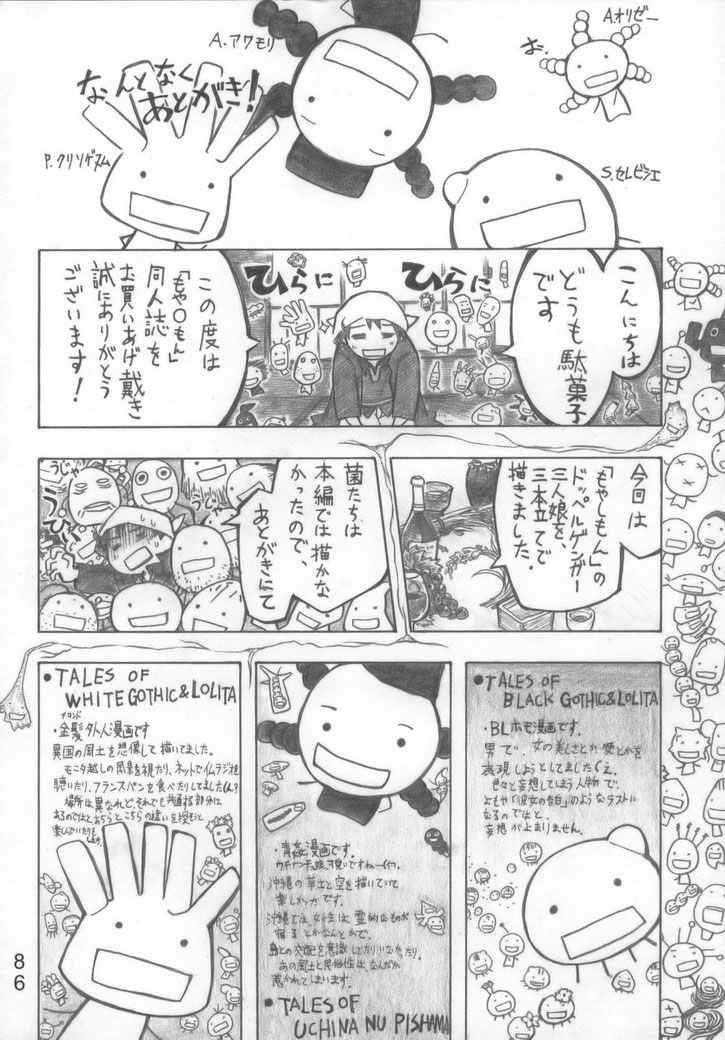 A.アワモリ
A.オリゼー
お.
なんとなく
あとがき!
P.クリソゲヌム
S.セレビシエ
こんにちは
どうも駄菓子
です
ひらに
ひらに
この度は
「もや〇もん」
同人誌を
お買いあげ戴き
誠にありがとう
ございます!
今回は
「もやしもん」の
ドッペルゲンガー
三人娘を、
三本立てで
描きました。
菌たちは
本編では描かな
かったので、
あとがきにて
うじゃ
うじゃ
うひ
•TALES OF
BLACK GOTHIC&LOLITA
・BLホモ漫画です。
男で、女の美しさとか愛とかを
表現しようとしてましたしえ。
色々と妄想してしまう人物で
よもや「彼女の告白」のようなラストに
なるのではと、
妄想が止まりません。
・青姦漫画です。
沖縄の草土と空を描いていて
楽しかったです。
沖縄では、女性は霊的なものが
宿るとかなんとかで、
島との交配を意識してたりしなかったり。
あの風土と民俗性はなんだか
惹かれてしまいます。
•TALES OF
UCHINA NU PISHAMA
•TALES OF
WHITE GOTHIC&LOLITA
ブロンド
・金髪外人漫画です
異国の風土を想像して描いてました。
モニタ越しの風景を視たり、ネットでイムラジオを
聴いたり、フランスパンを食べたりしてましたしね?
場所は異なれど、それでも共通する部分は
あるのではと、あちらとこちらの違いを探もうと
86